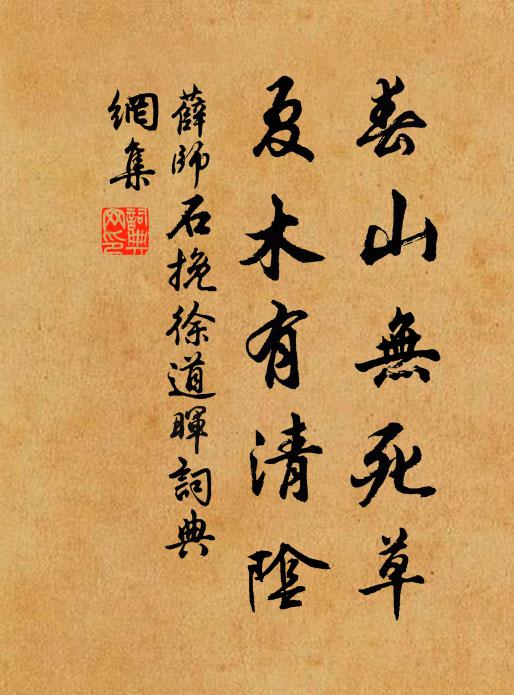 春山無死草
夏木有清陰
薛師石挽徐道暉詞典
網集
詞典
网印